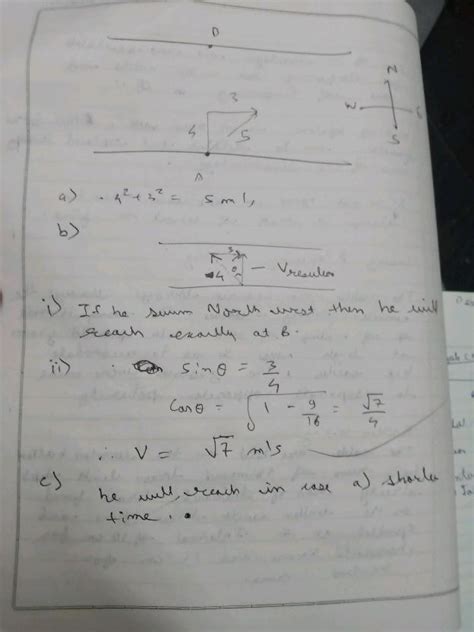 B
N
W E
S
3
4 5
A
a) 4²+3² = 5 m/s
b)
3
4 θ — Vresultan
i) If he swim North west then he will
reach exactly at B.
ii) sinθ = 3/4
Cosθ = √(1 - 9/16) = √7/4
∴ V = √7 m/s
c) he will reach in case a) shorter
time.